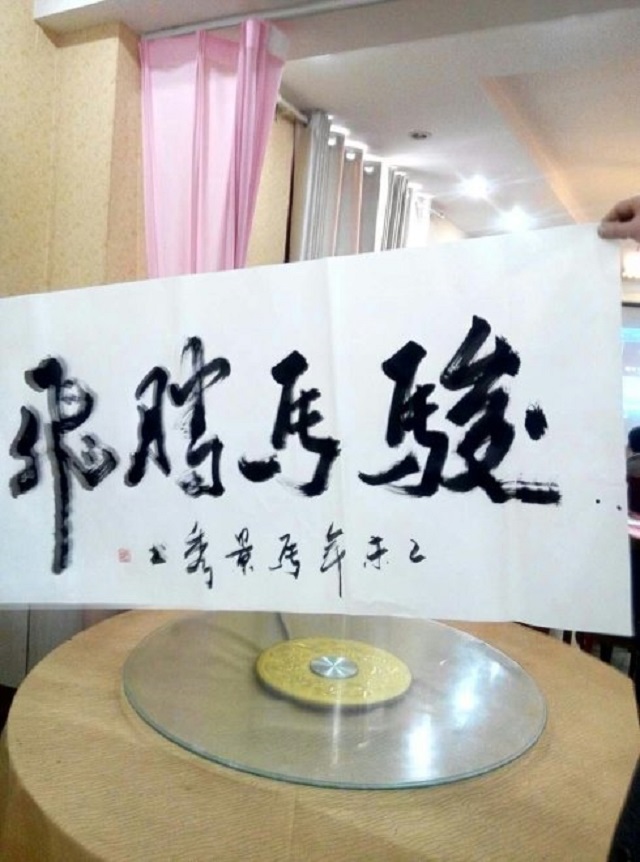 駿馬騰飛
乙未年馬景秀書